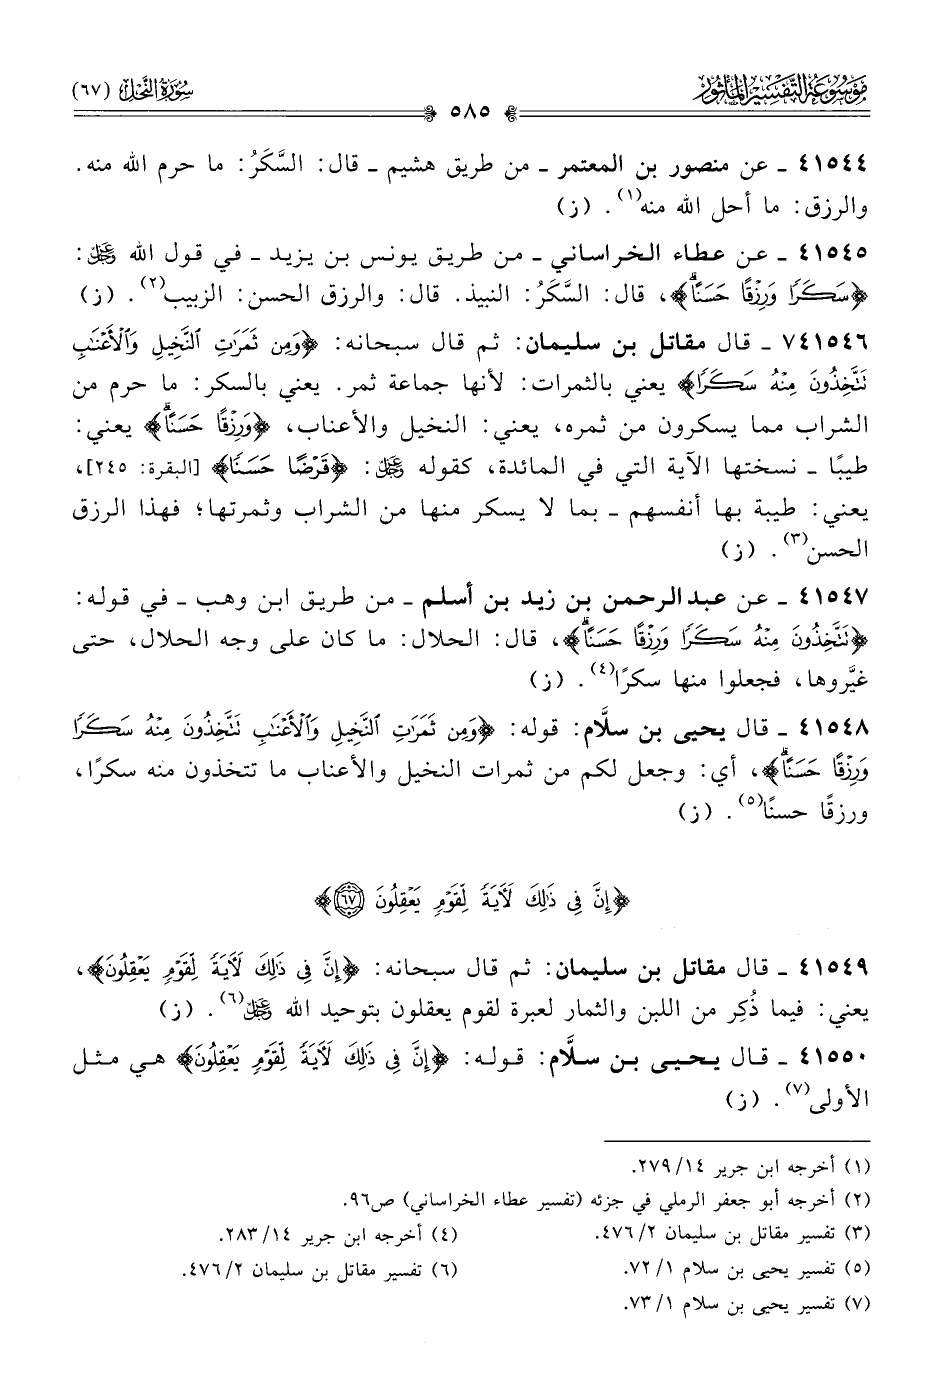 موسوعة التفسير المأثور
٥٨٥
سورة النحل (٦٧)
٤١٥٤٤ ـ عن منصور بن المعتمر ـ من طريق هشيم ـ قال: السَّكَرُ: ما حرم الله منه.
والرزق: ما أحل الله منه(١). (ز)
٤١٥٤٥ ـ عن عطاء الخراساني ـ من طريق يونس بن يزيد ـ في قول الله ﷿:
﴿سَكَرًا وَرِزْقًا حَسَنًا﴾، قال: السَّكَرُ: النبيذ. قال: والرزق الحسن: الزبيب(٢). (ز)
٧٤١٥٤٦ ـ قال مقاتل بن سليمان: ثم قال سبحانه: ﴿وَمِن ثَمَرَٰتِ ٱلنَّخِيلِ وَٱلْأَعْنَٰبِ
تَتَّخِذُونَ مِنْهُ سَكَرًا﴾ يعني بالثمرات: لأنها جماعة ثمر. يعني بالسكر: ما حرم من
الشراب مما يسكرون من ثمره، يعني: النخيل والأعناب، ﴿وَرِزْقًا حَسَنًا﴾ يعني:
طيبًا ـ نسختها الآية التي في المائدة، كقوله ﷿: ﴿قَرْضًا حَسَنًا﴾ [البقرة: ٢٤٥]،
يعني: طيبة بها أنفسهم ـ بما لا يسكر منها من الشراب وثمرتها؛ فهذا الرزق
الحسن(٣). (ز)
٤١٥٤٧ ـ عن عبدالرحمن بن زيد بن أسلم ـ من طريق ابن وهب ـ في قوله:
﴿تَتَّخِذُونَ مِنْهُ سَكَرًا وَرِزْقًا حَسَنًا﴾، قال: الحلال: ما كان على وجه الحلال، حتى
غيَّروها، فجعلوا منها سكرًا(٤). (ز)
٤١٥٤٨ ـ قال يحيى بن سلَّام: قوله: ﴿وَمِن ثَمَرَٰتِ ٱلنَّخِيلِ وَٱلْأَعْنَٰبِ تَتَّخِذُونَ مِنْهُ سَكَرًا
وَرِزْقًا حَسَنًا﴾، أي: وجعل لكم من ثمرات النخيل والأعناب ما تتخذون منه سكرًا،
ورزقًا حسنًا(٥). (ز)
﴿إِنَّ فِى ذَٰلِكَ لَءَايَةً لِّقَوْمٍ يَعْقِلُونَ ٦٧﴾
٤١٥٤٩ ـ قال مقاتل بن سليمان: ثم قال سبحانه: ﴿إِنَّ فِى ذَٰلِكَ لَءَايَةً لِّقَوْمٍ يَعْقِلُونَ﴾،
يعني: فيما ذُكِر من اللبن والثمار لعبرة لقوم يعقلون بتوحيد الله ﷿(٦). (ز)
٤١٥٥٠ ـ قال يحيى بن سلَّام: قوله: ﴿إِنَّ فِى ذَٰلِكَ لَءَايَةً لِّقَوْمٍ يَعْقِلُونَ﴾ هي مثل
الأولى(٧). (ز)
(١) أخرجه ابن جرير ١٤/ ٢٧٩.
(٢) أخرجه أبو جعفر الرملي في جزئه (تفسير عطاء الخراساني) ص٩٦.
(٣) تفسير مقاتل بن سليمان ٢/ ٤٧٦.
(٤) أخرجه ابن جرير ١٤/ ٢٨٣.
(٥) تفسير يحيى بن سلام ١/ ٧٢.
(٦) تفسير مقاتل بن سليمان ٢/ ٤٧٦.
(٧) تفسير يحيى بن سلام ١/ ٧٣.